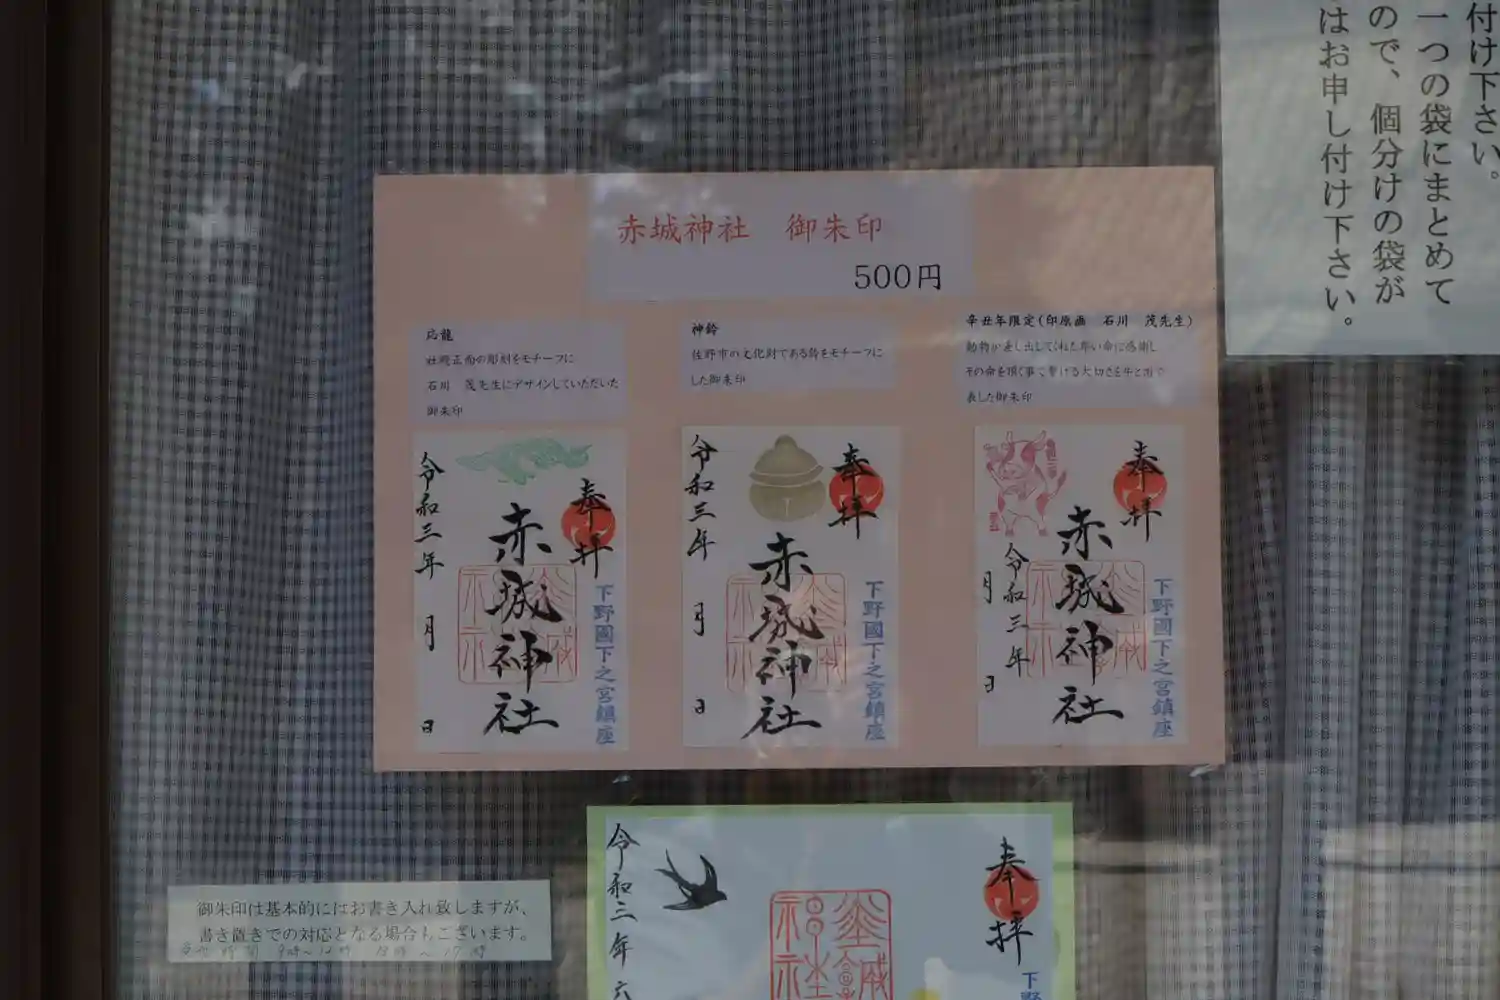 付け下さい。
一つの袋にまとめて
ので、個分けの袋が
はお申し付け下さい。
赤城神社 御朱印
500円
応龍
社殿正面の彫刻をモチーフに
石川 茂先生にデザインしていただいた
御朱印
神鈴
佐野市の文化財である鈴をモチーフに
した御朱印
辛丑年限定(印原画 石川 茂先生)
動物が差し出してくれた尊い命に感謝し
その命を頂く事で繋げる大切さを牛と治で
表した御朱印
奉拝
下野國下之宮鎮座
赤城神社
令和三年 月 日
奉拝
下野國下之宮鎮座
赤城神社
令和三年 月 日
奉拝
下野國下之宮鎮座
赤城神社
令和三年
月 日
奉拝
下野
令和三年 六
御朱印は基本的にはお書き入れ致しますが、
書き置きでの対応となる場合もございます。